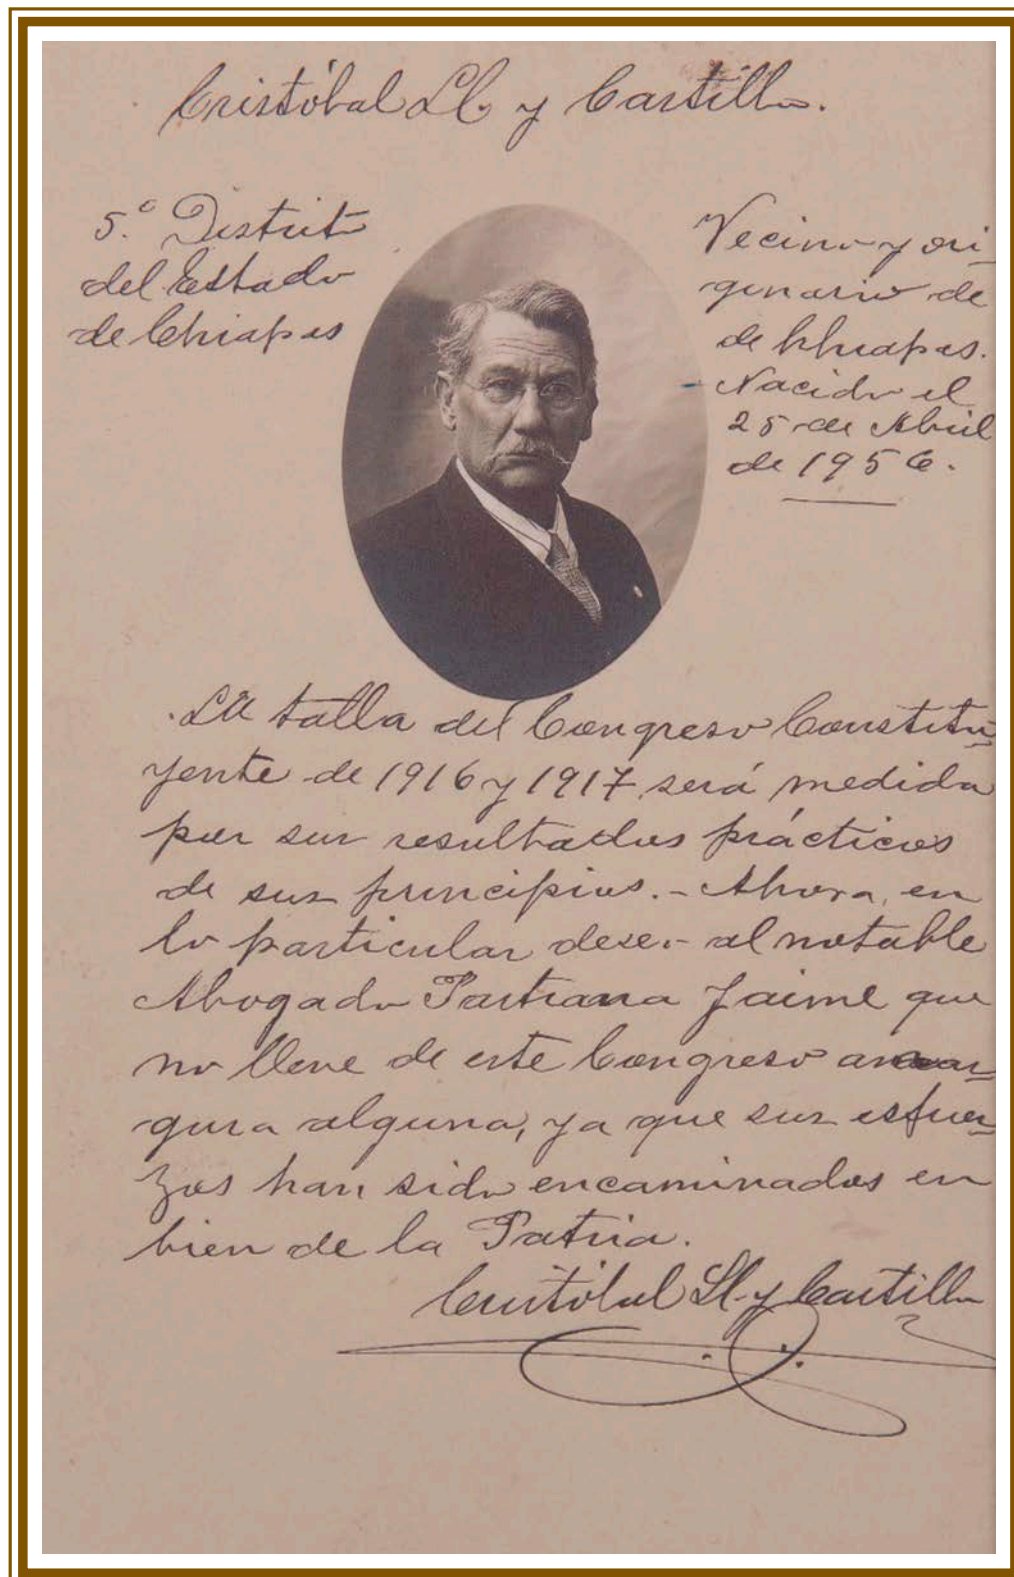 Cristóbal Ll. y Castillo.
5.º Distrito
del Estado
de Chiapas
Vecino y ori-
ginario de
de Chiapas.
Nacido el
25 de Abril
de 1956.
La talla del Congreso Constitu-
yente de 1916 y 1917 será medida
por sus resultados prácticos
de sus principios.- Ahora, en
lo particular deseo al notable
Abogado Pastrana Jaime que
no lleve de este Congreso amar-
gura alguna, ya que sus esfuer-
zos han sido encaminados en
bien de la Patria.
Cristóbal Ll. y Castillo